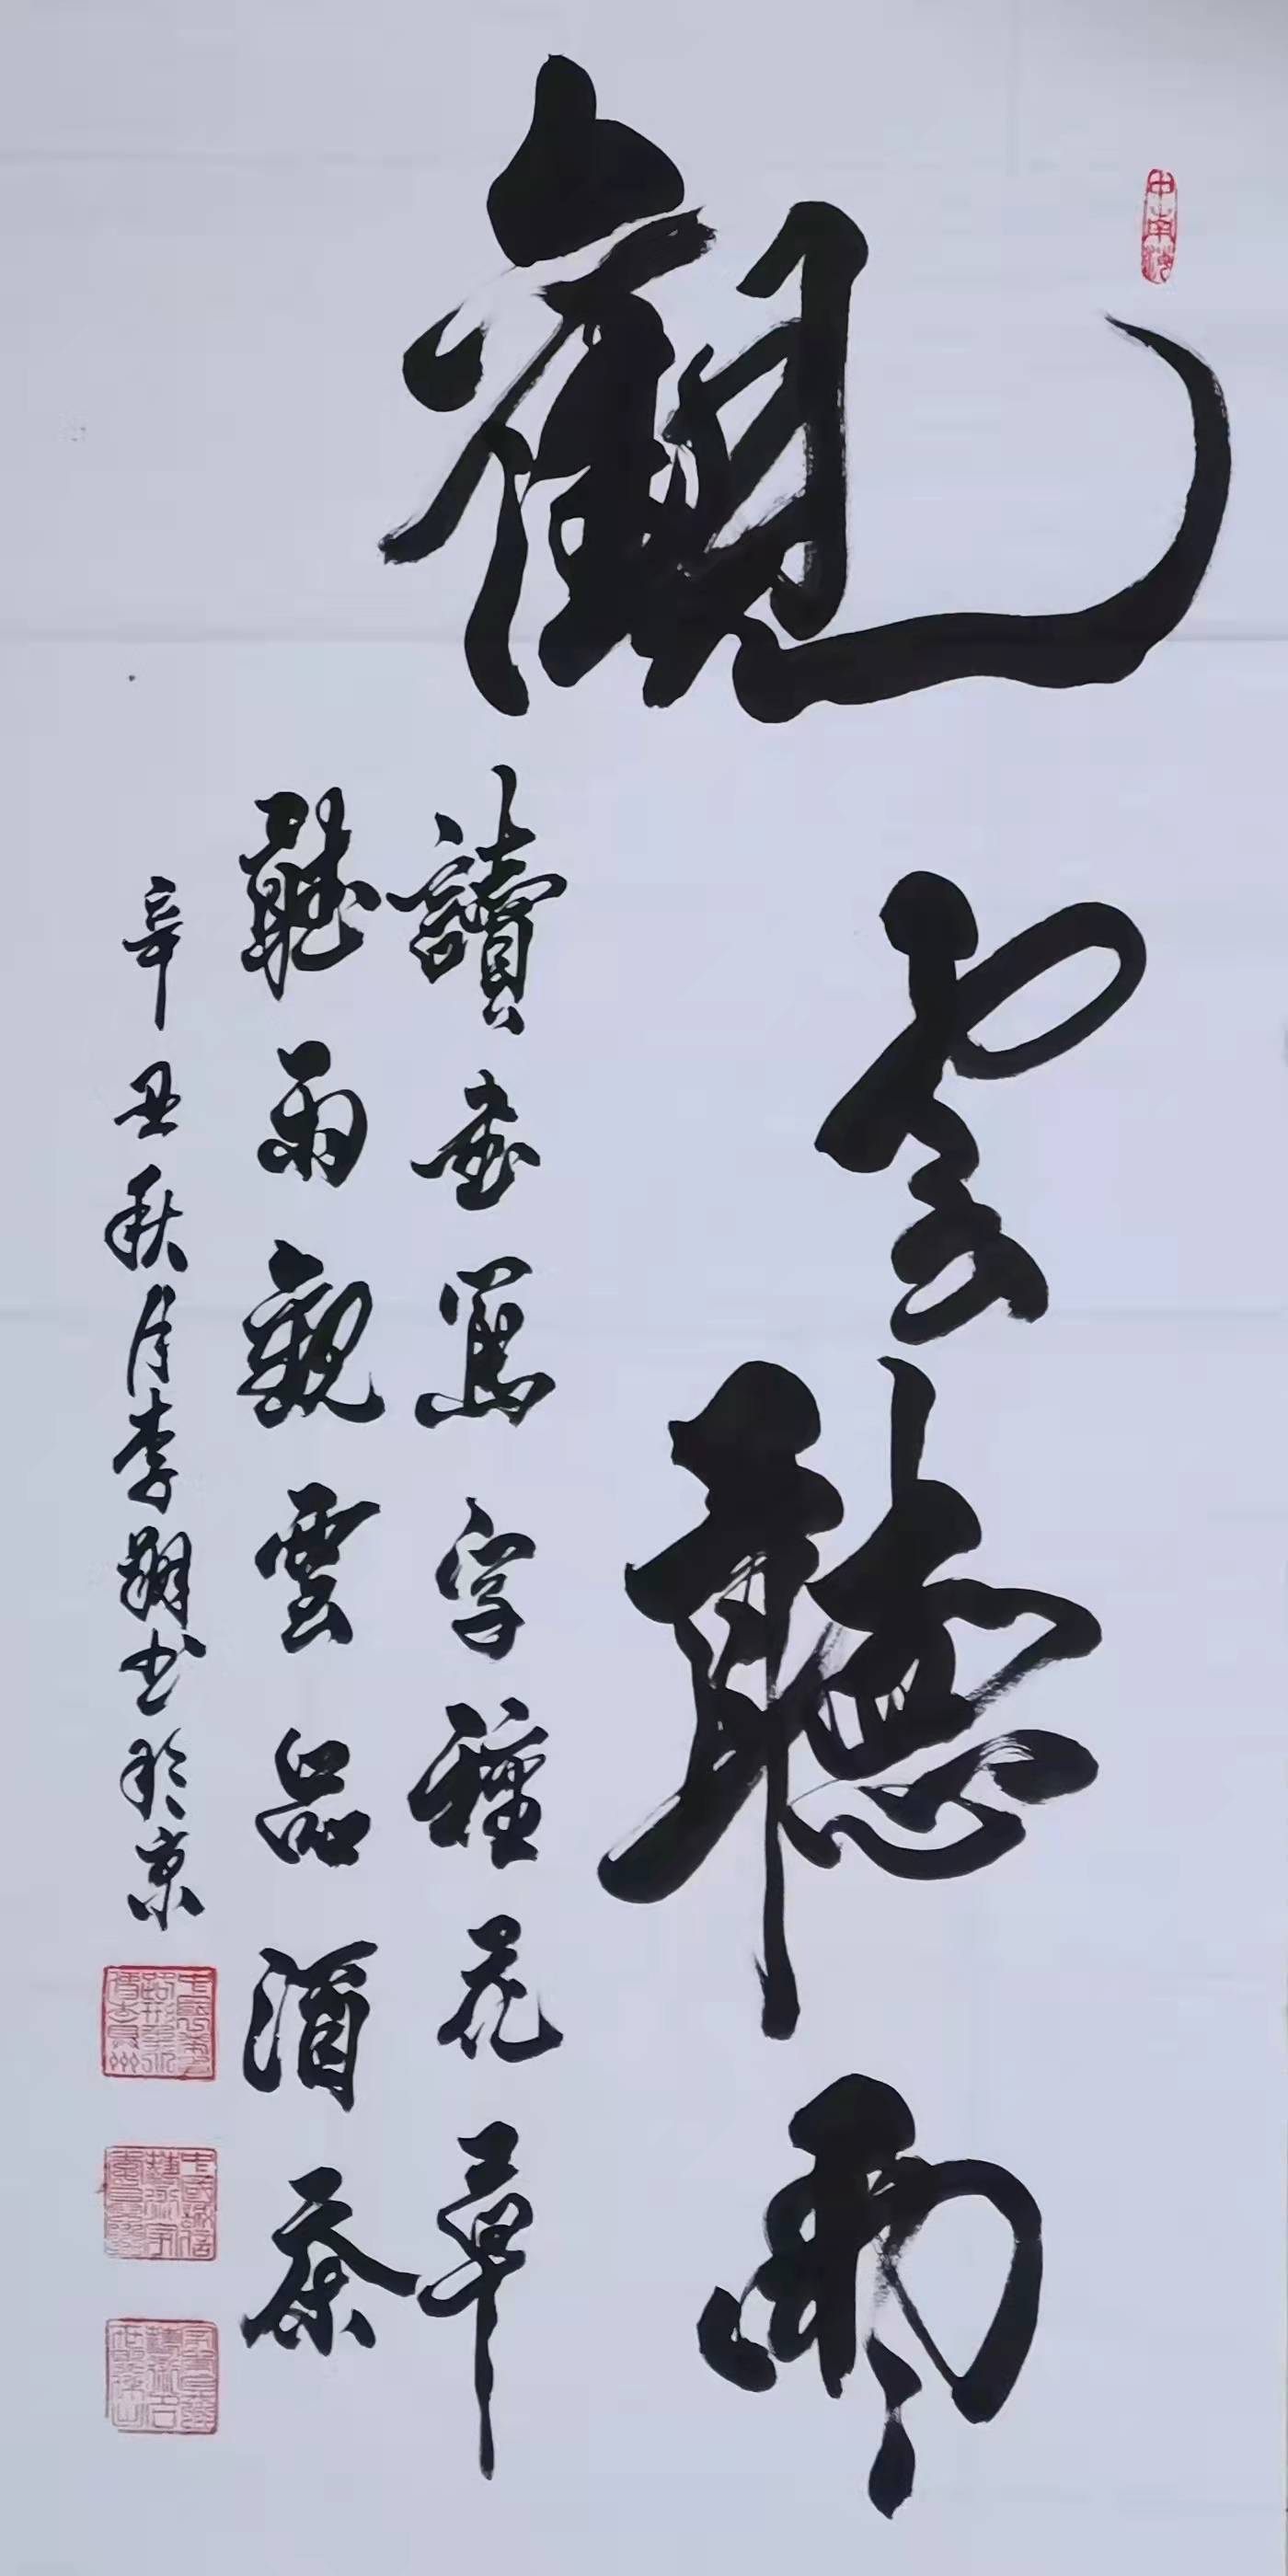 中南海
觀雲聽雨
讀書寫字種花草
聽雨觀雲品酒茶
辛丑秋月李朝书於京